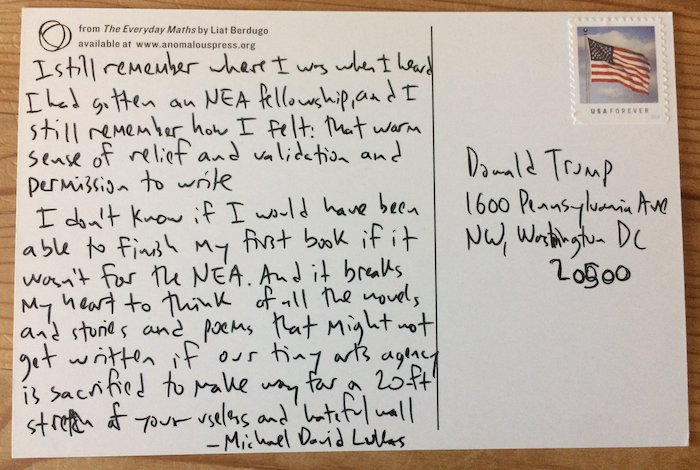 from The Everyday Maths by Liat Berdugo
available at www.anomalouspress.org
I still remember where I was when I heard
I had gotten an NEA fellowship, and I
still remember how I felt: that warm
sense of relief and validation and
permission to write
I don't know if I would have been
able to finish my first book if it
wasn't for the NEA. And it breaks
my heart to think of all the novels
and stories and poems that might not
get written if our tiny arts agency
is sacrificed to make way for a 20-ft
stretch of your useless and hateful wall
- Michael David Lukas
USA FOREVER
Donald Trump
1600 Pennsylvania Ave
NW, Washington DC
20500